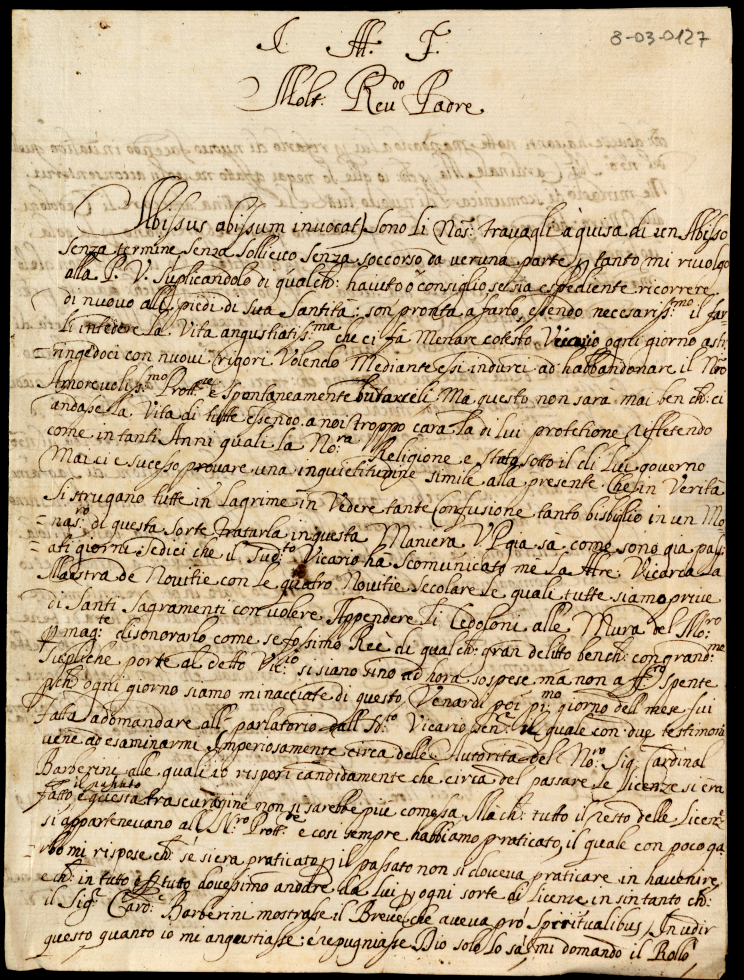 8-03-0127
J. M. J.
Molt: Reu:do Padre
Abissus abissum invocat) sono li Nos: travagli a guisa di un Abisso
senza termine senza sollieuo senza soccorso da veruna parte, p tanto mi riuolgo
alla P. V. suplicandolo di qualch: hauiuto o consiglio, se sia espediente ricorrere
di nuovo alli piedi di sua Santita: son pronta a farlo, essendo necessariss:mo il far
li intedere la Vita angustiatis:ma che ci fa Menare cotesto Vicario ogni giorno astri
=ngedoci con nuoui rigori Volendo Mediante essi indurci ad habbandonare il Nōro
Amoreuoliss:mo Prott:re e spontaneamente Ma questo non sarà mai ben ch: ci
andase la Vita di tutte essendo a noi troppo cara la di lui protetione reflettendo
come in tanti Anni quali la No:ra Religione e stata sotto il di lui governo
Mai ci e sucesso prouare una inquietitudine simile alla presente Che in Verità
si strugano tutte in lagrime in Vedere tante Confusione tanto bisbiglio in un Mo
=nas:ro di questa sorte tratarla in questa Maniera VP gia sa come sono gia pas
=ati giorni sedici che il Sud:to Vicario ha scomunicato me la Mre: Vicarca la
Maestra de Nouitie con le quatro Nouitie secolare le quali tutte siamo priue
di Santi Sagramenti con volere Appendere li Cedoloni alle Mura del Mo:ro
p mag:te disonorarlo come se fossimo Ree di qualch: gran delitto bench: con gran:me
supliche porte al detto Vic:io si siano sino ad hora sospese ma non a spente
p ch: ogni giorno siamo minacciate di questo, Venardi poi pi:mo giorno del mese fui
fatta adomandare all parlatorio dall Sd:to Vicario il quale con due testimoni
uene ad esaminarmi Imperiosamente circa delle Autorità del No:ro Sig: Cardinal
Barberini alle quali io risposi candidamente che circa del passare le licenze si era
fatto il rifiuto e questa trascuragine non si sarebbe piu comessa Mach: tutto il resto delle licenz:e
si appartenevano all N:ro Prott:re e cosi sempre habbiamo praticato, il quale con poco ga
=rbo mi rispose ch: se si era praticato p il passato non si doueua praticare in hauenire
e ch: in tutto e p tutto dovessimo andare da lui p ogni sorte di licenze in sin tanto ch:
il Sig:e Card:e Barberini mostrasse il Breue che aveva pro Spiritualibus An udir
questo quanto io mi angustiasse: e repugniasse Dio solo lo sa, mi domando il Rollo